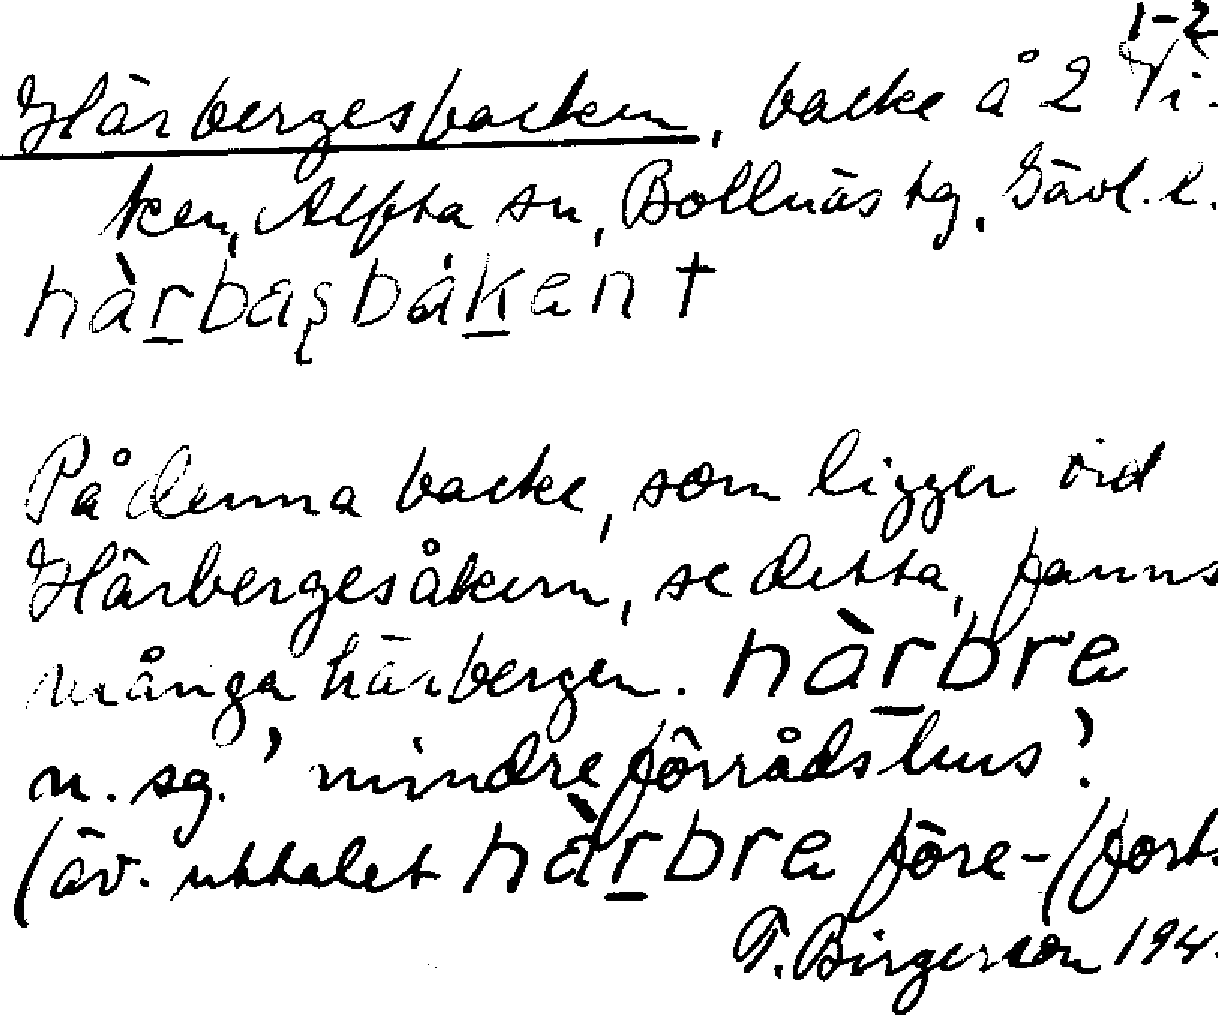 1-2
Härbergesbacken, backe å 2 Vi-
ken, Alfta sn, Bollnäs tg, Gävl. l.
hàrbasbákan †
På denna backe, som ligger vid
Härbergesåkern, se detta, fanns
många härbergen. hàrbre
n. sg. 'mindre förrådshus'.
(äv. uttalet hàrbre före- (forts.
T. Birgersson 194